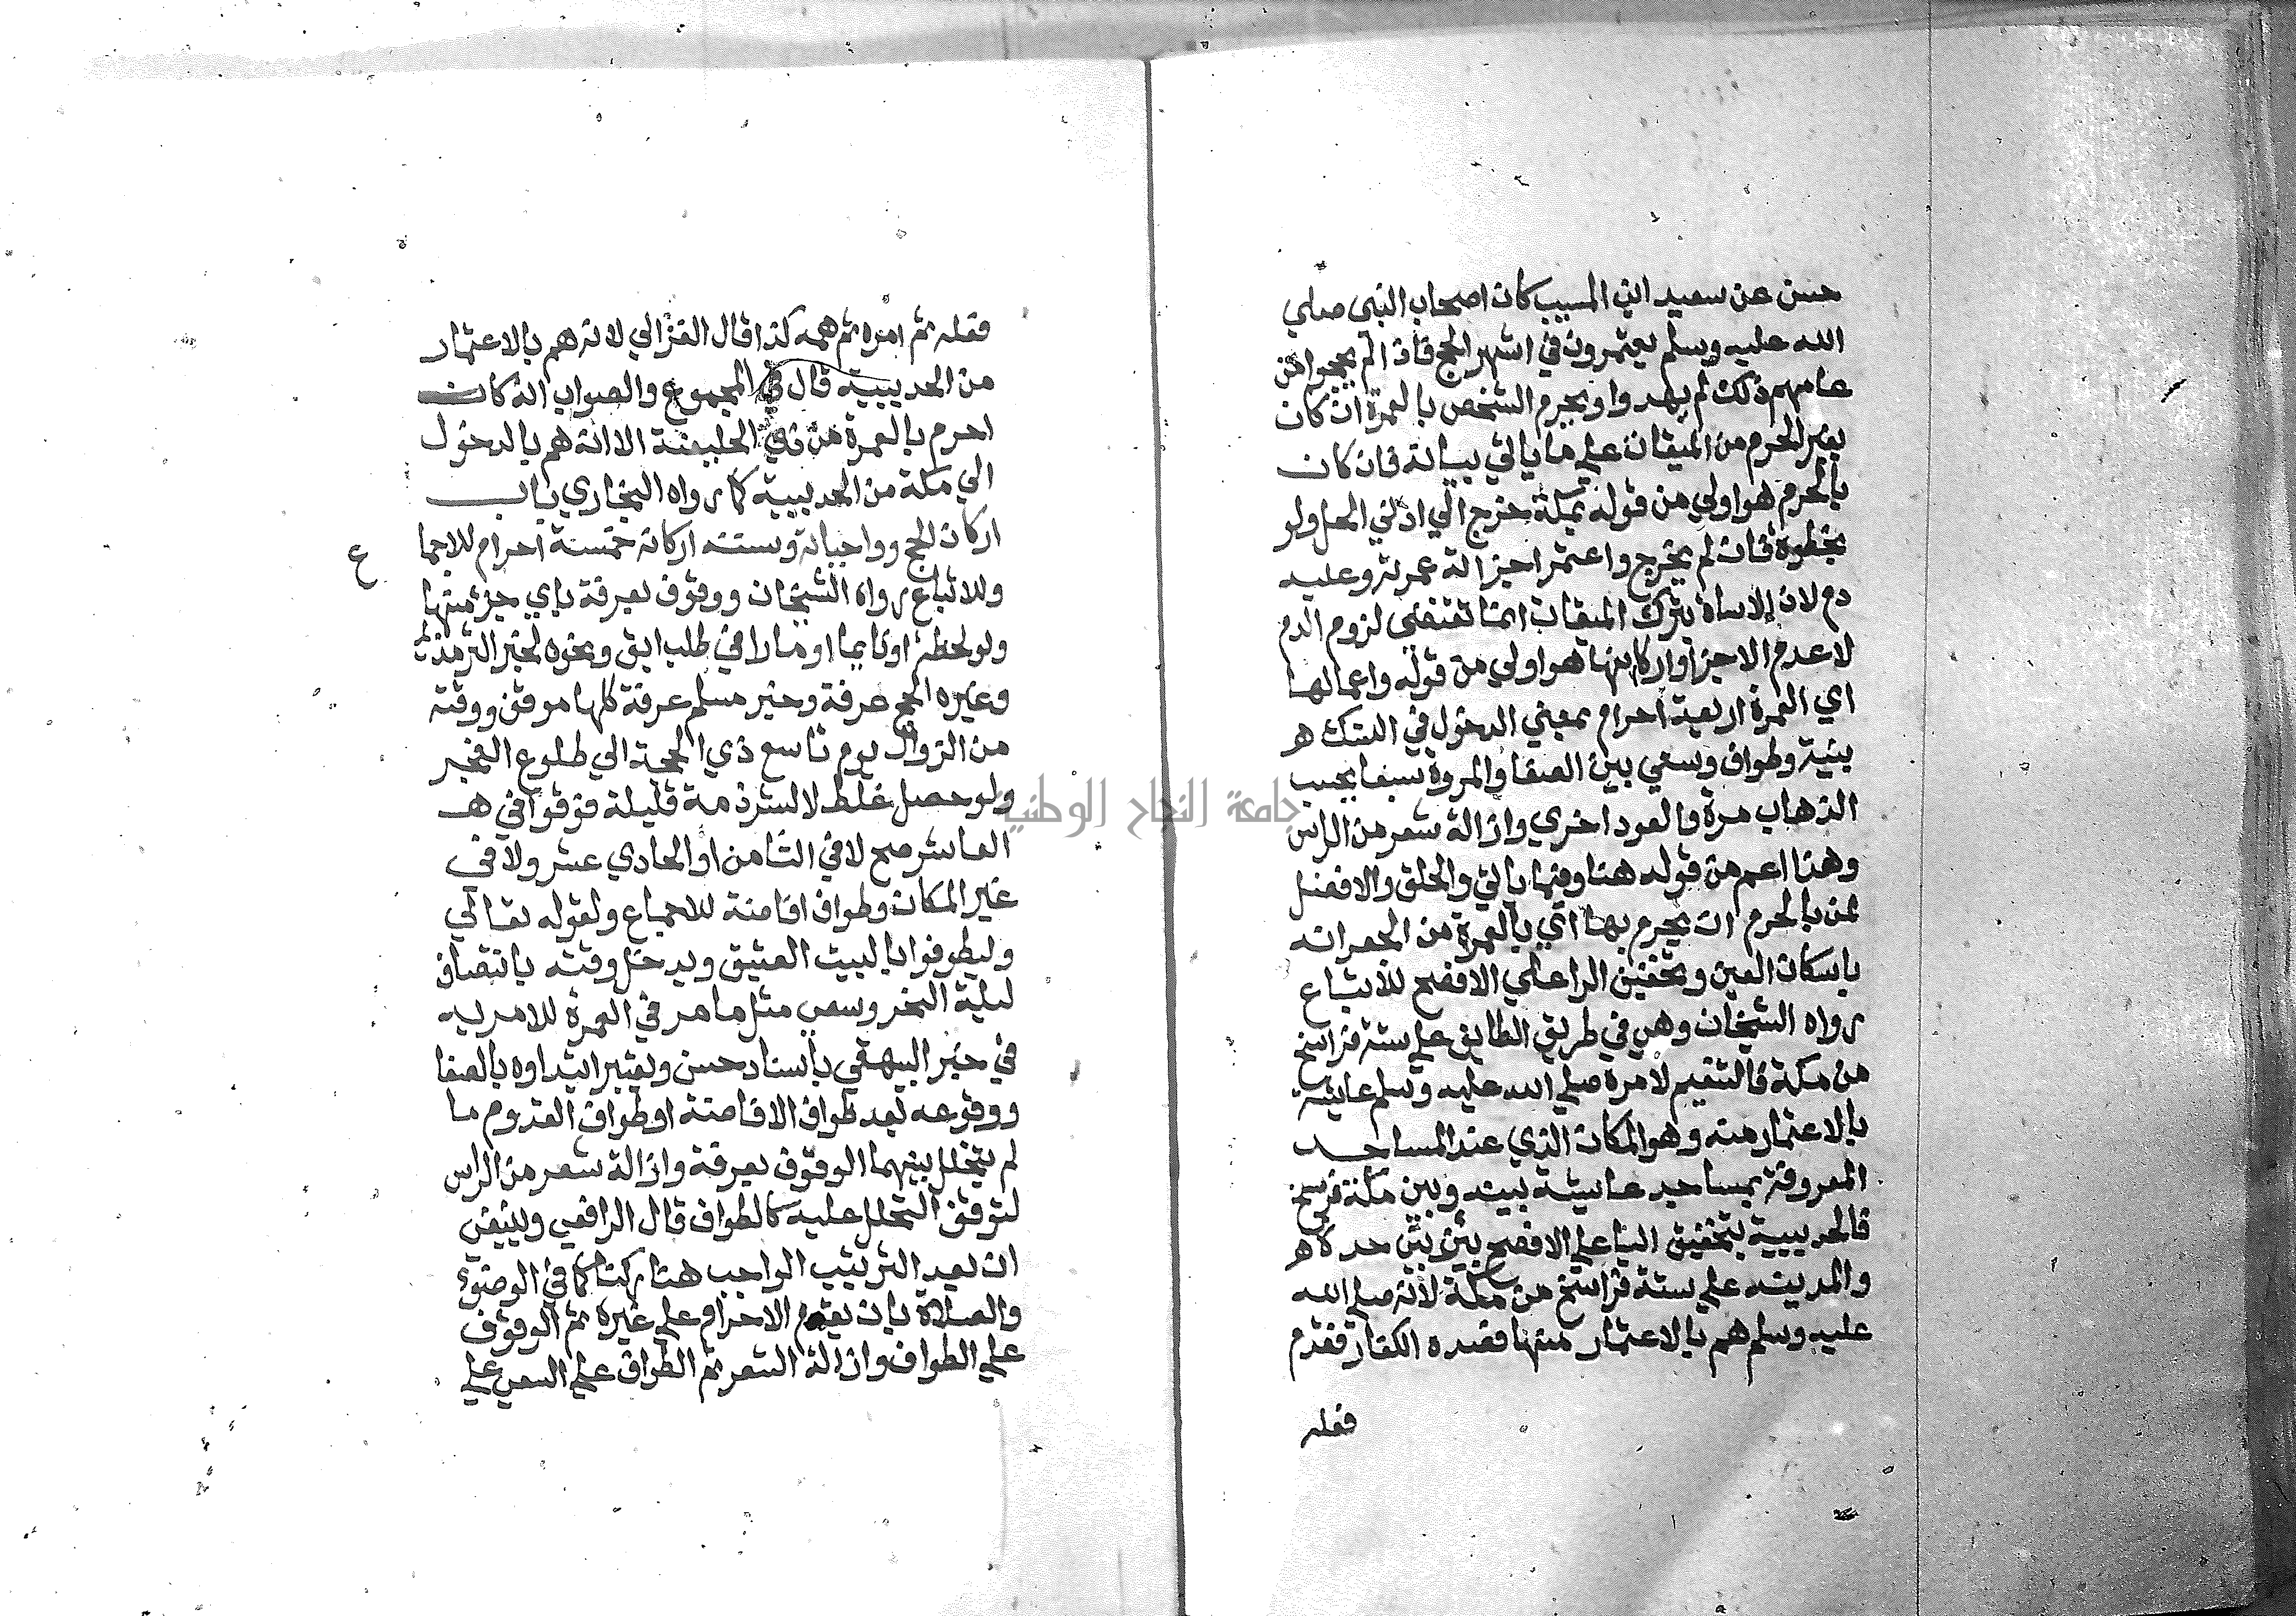 حسن عن سعيد ابن المسيب كان اصحاب النبي صلي
الله عليه وسلم يعتمرون في اشهر الحج فاذا لم يحجوا من
عامهم ذلك لم يهدوا ويحرم الشخص بالعمرة ان كان
بغير الحرم من الميقات علي ما ياتي بيانه فان كان
بالحرم هو اولي من قوله بمكة خرج الي ادني الحل ولو
بخطوة فان لم يخرج واعتمر اجزاته عمرته وعليه
دم لان الاساة بترك الميقات انما تقتضي لزوم الدم
لا عدم الاجزا واركانها هو اولي من قوله واعمالها
اي العمرة اربعة احرام بمعني الدخول في النسك هـ
بنية وطواف وسعي بين الصفا والمروة سبعا بحسب
الذهاب مرة والعود اخري وازالة شعر من الراس
وهذا اعم من قوله هنا وفيما ياتي والحلق والافضل
لمن بالحرم ان يحرم بها اي بالعمرة من الجعرانه
باسكان العين وتخفيف الرا علي الافصح للاتباع
رواه الشيخان وهي في طريق الطايف علي ستة فراسخ
من مكة فالتنعيم لامره صلي الله عليه وسلم عايشة
بالاعتمار منه وهو المكان الذي عند المساجد
المعروفة بمساجد عايشة بينه وبين مكة فرسخ
فالحديبية بتخفيف اليا علي الافصح بئر بين حده هـ
والمدينه علي ستة فراسخ من مكة لانه صلي الله
عليه وسلم هم بالاعتمار منها فصده الكفار فقدم
فعله
فعله ثم امره ثم همه كذا قال الغزالي لانه هم بالاعتمار
من الحديبية قال في المجموع والصواب انه كان
احرم بالعمرة من ذي الحليفة الا انه هم بالدخول
الي مكة من الحديبية كما رواه البخاري باب
اركان الحج وواجباته وسننه اركانه خمسة احرام للاجما
ع
وللاتباع رواه الشيخان ووقوف بعرفة باي جز منها
ولو لحظة او نايما او مارا في طلب ابق ونحوه لخبر الترمذي
وغيره الحج عرفة وخبر مسلم عرفة كلها موقف ووقته
من الزوال يوم تاسع ذي الحجة الي طلوع الفجر
ولو حصل غلط لا لشرذمة قليلة فوقفوا في هـ
العاشر صح لا في الثامن او الحادي عشر ولا في
غير المكان وطواف افاضة للاجماع ولقوله تعالي
وليطوفوا بالبيت العتيق ويدخل وقته بانتصاف
ليلة النحر وسعي مثل ما مر في العمرة للامر به
في خبر البيهقي باسناد حسن ويعتبر ابتداوه بالصفا
ووقوعه بعد طواف الافاضة او طواف القدوم ما
لم يتخلل بينهما الوقوف بعرفة وازالة شعر من الراس
لتوقف التحلل عليه كالطواف قال الرافعي وينبغي
ان يعد الترتيب الواجب هنا ركنا كما في الوضوء
والصلاة بان يقدم الاحرام علي غيره ثم الوقوف
علي الطواف وازالة الشعر ثم الطواف علي السعي علي
جامعة النجاح الوطنية